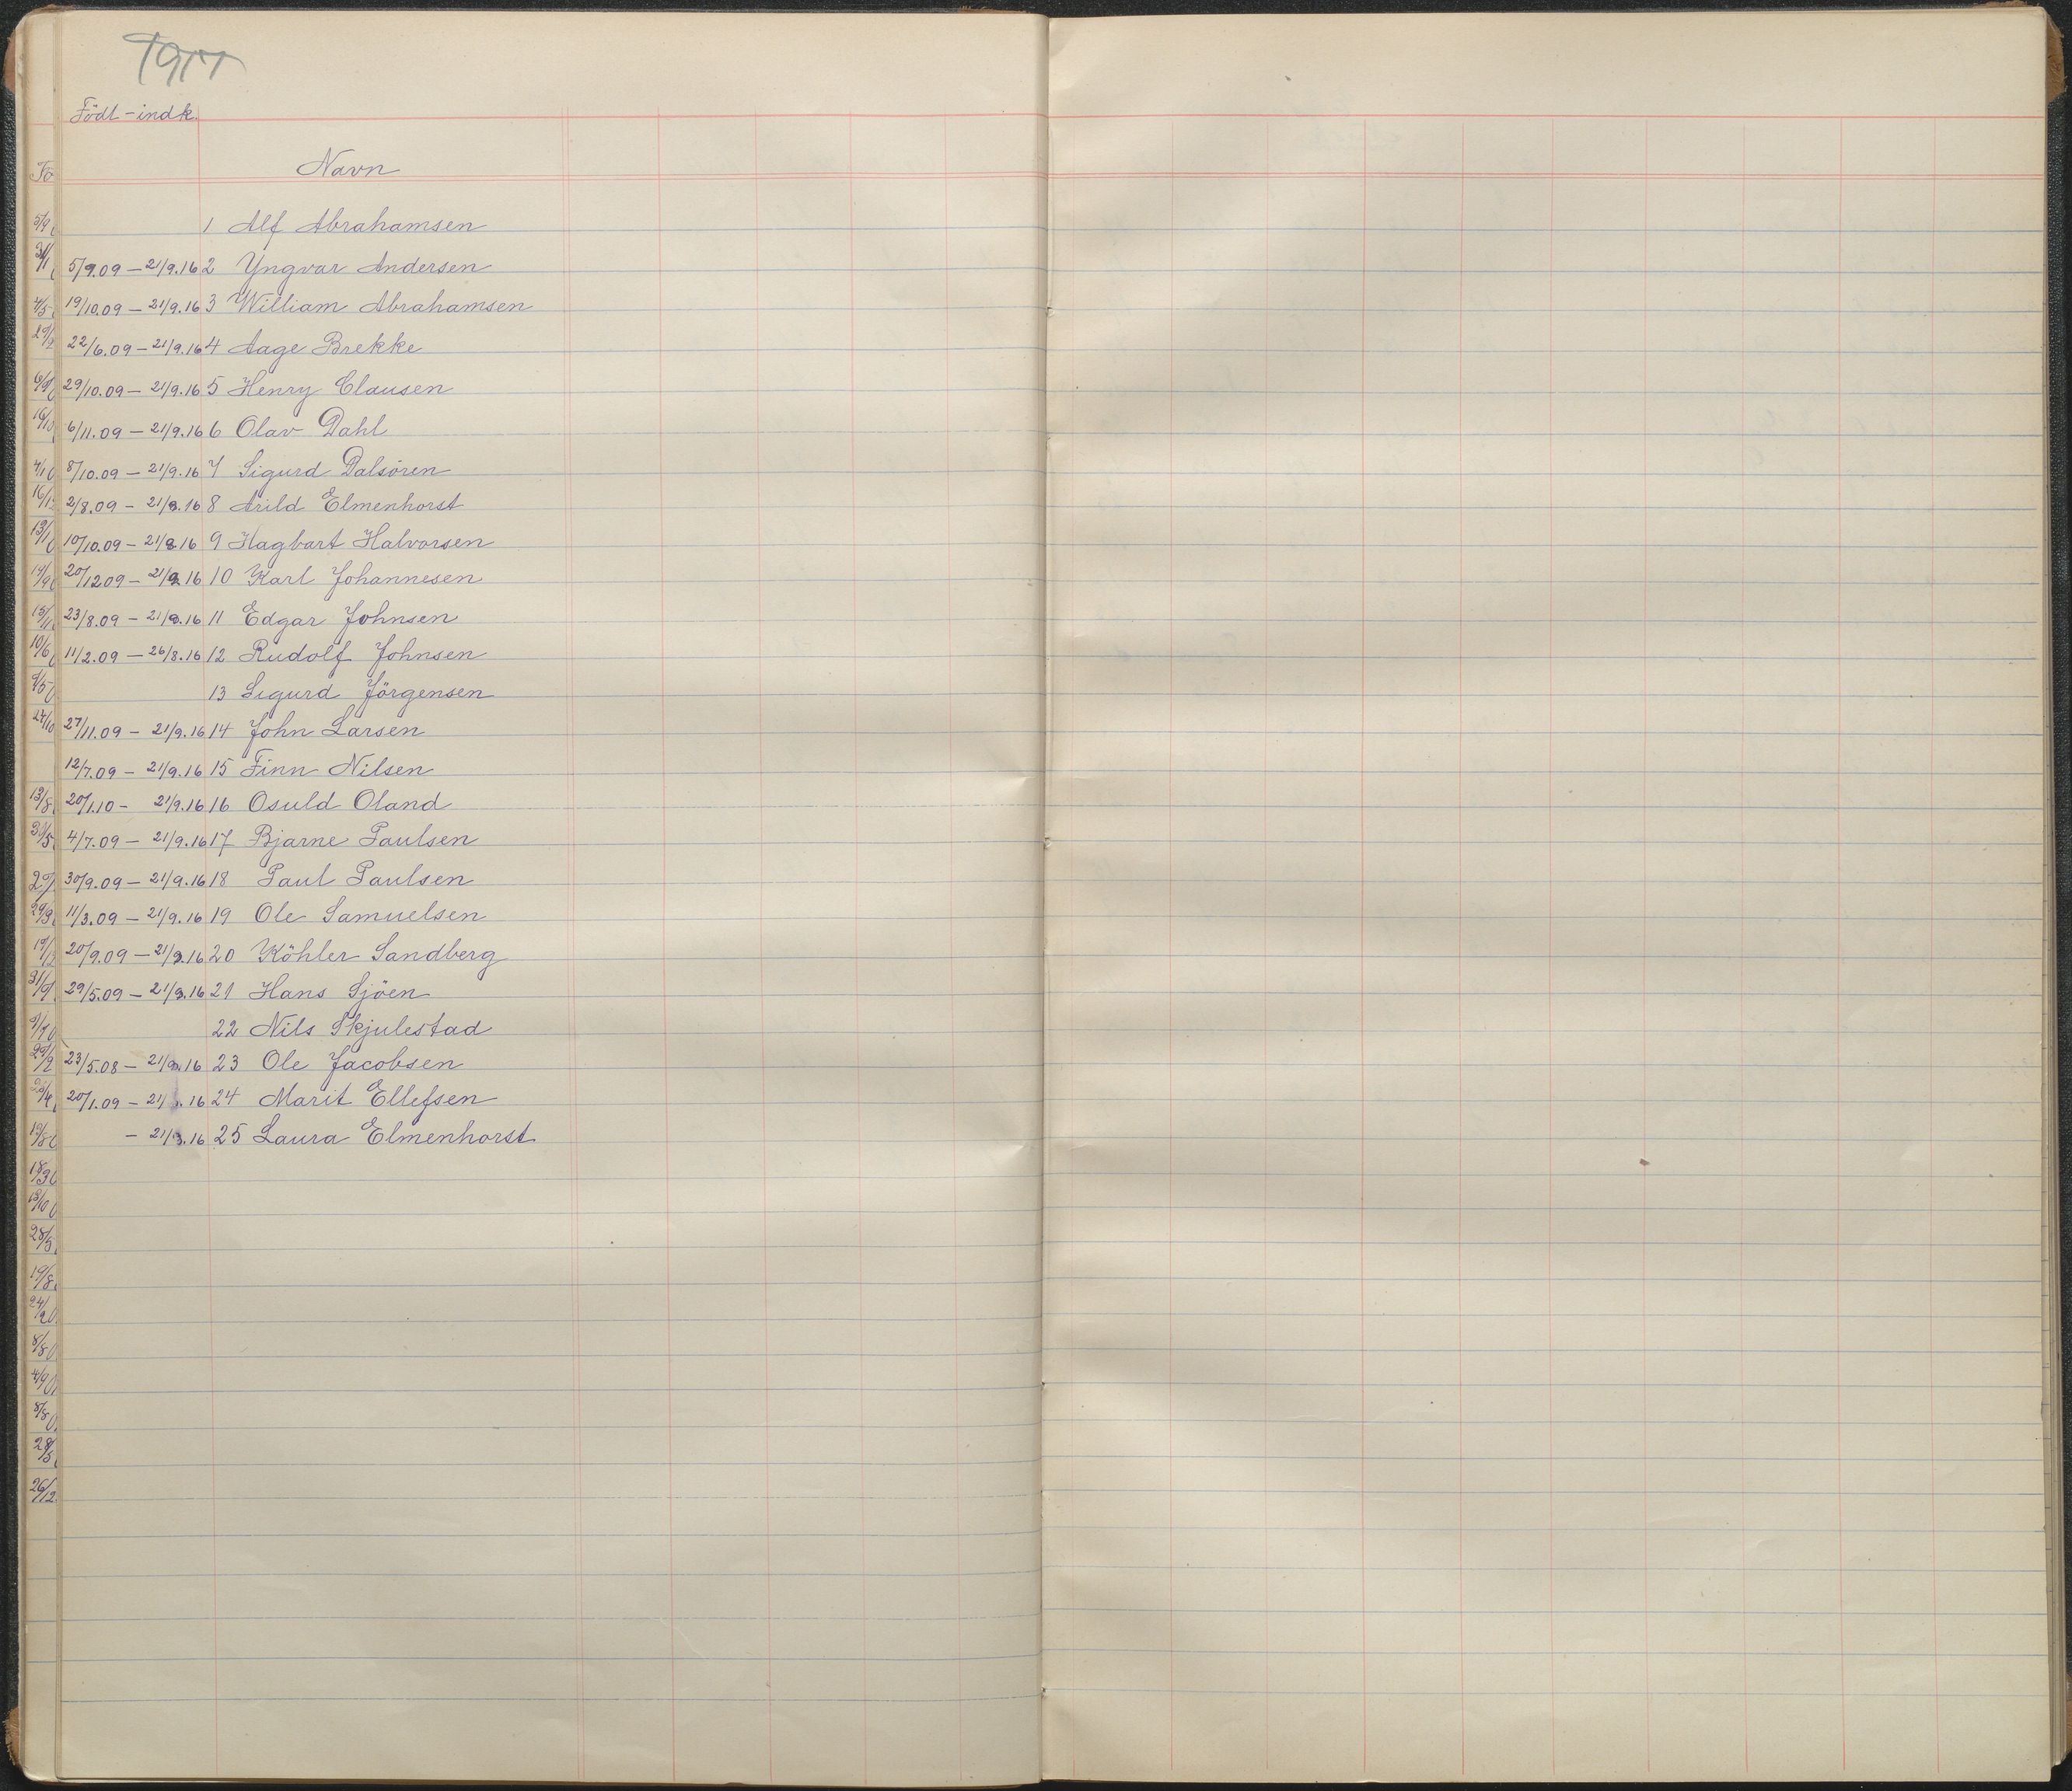 Födt - indk.
Navn
1 Alf Abrahamsen
5/9.09 - 21/9.16 2 Yngvar Andersen
19/10.09 - 21/9.16 3 William Abrahamsen
22/6.09 - 21/9.16 4 Aage Brekke
29/10.09 - 21/9.16 5 Henry Clausen
6/11.09 - 21/9.16 6 Olav Dahl
8/10.09 - 21/9.16 7 Sigurd Dalsören
2/8.09 - 21/9.16 8 Arild Elmenhorst
10/10.09 - 21/9.16 9 Hagbart Halvorsen
20/12 09 - 21/9 16 10 Karl Johannesen
23/8.09 - 21/9.16 11 Edgar Johnsen
11/2.09 - 26/8.16 12 Rudolf Johnsen
13 Sigurd Jörgensen
27/11.09 - 21/9.16 14 John Larsen
12/7.09 - 21/9.16 15 Finn Nilsen
20/1.10 - 21/9.16 16 Osuld Oland
4/7.09 - 21/9.16 17 Bjarne Paulsen
30/9.09 - 21/9.16 18 Paul Paulsen
11/3.09 - 21/9.16 19 Ole Samuelsen
20/9.09 - 21/9.16 20 Köhler Sandberg
29/5.09 - 21/9.16 21 Hans Sjöen
22 Nils Skjulestad
23/5.08 - 21/9.16 23 Ole Jacobsen
20/1.09 - 21/9.16 24 Marit Ellefsen
- 21/9.16 25 Laura Elmenhorst